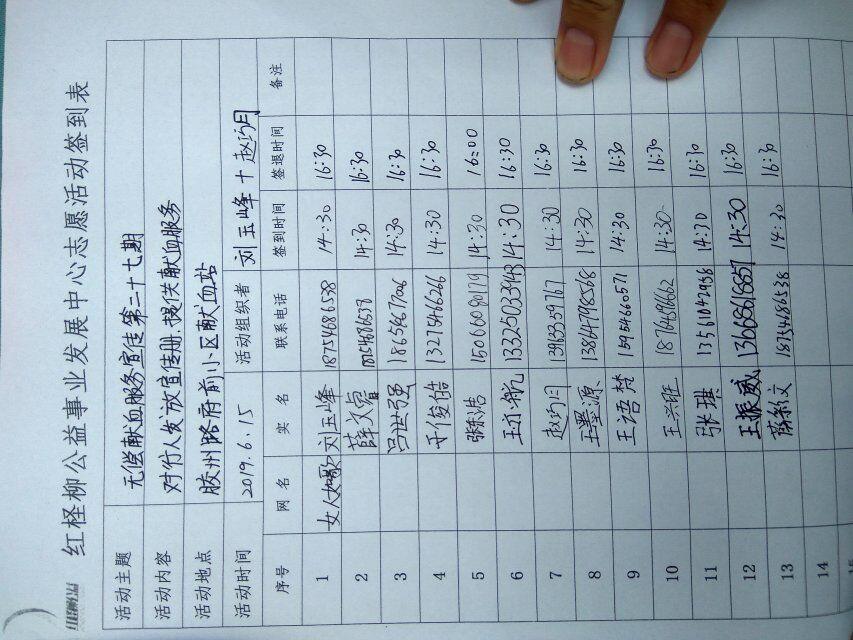 红柽柳公益事业发展中心志愿活动签到表
活动主题 无偿献血服务宣传第二十七期
活动内容 对行人发放宣传册.提供献血服务
活动地点 胶州路府前小区献血站
活动时间 2019.6.15 活动组织者 刘玉峰 + 赵巧月
序号 网名 实名 联系电话 签到时间 签退时间 备注
1 女人如歌 刘玉峰 18754686538 14:30 16:30
2 薛 14:30 16:30
3 吕世强 14:30 16:30
4 于俊皓 13275466266 14:30 16:30
5 浩 15066090179 14:30 16:00
6 王 13325033943 14:30 16:30
7 赵巧月 13963359767 14:30 16:30
8 王墨源 13864798568 14:30 16:30
9 王语梵 15954660571 14:30 16:30
10 王兴旺 14:30 16:30
11 张琪 13561042936 14:30 16:30
12 王振威 13668618857 14:30 16:30
13 14:30 16:30
14